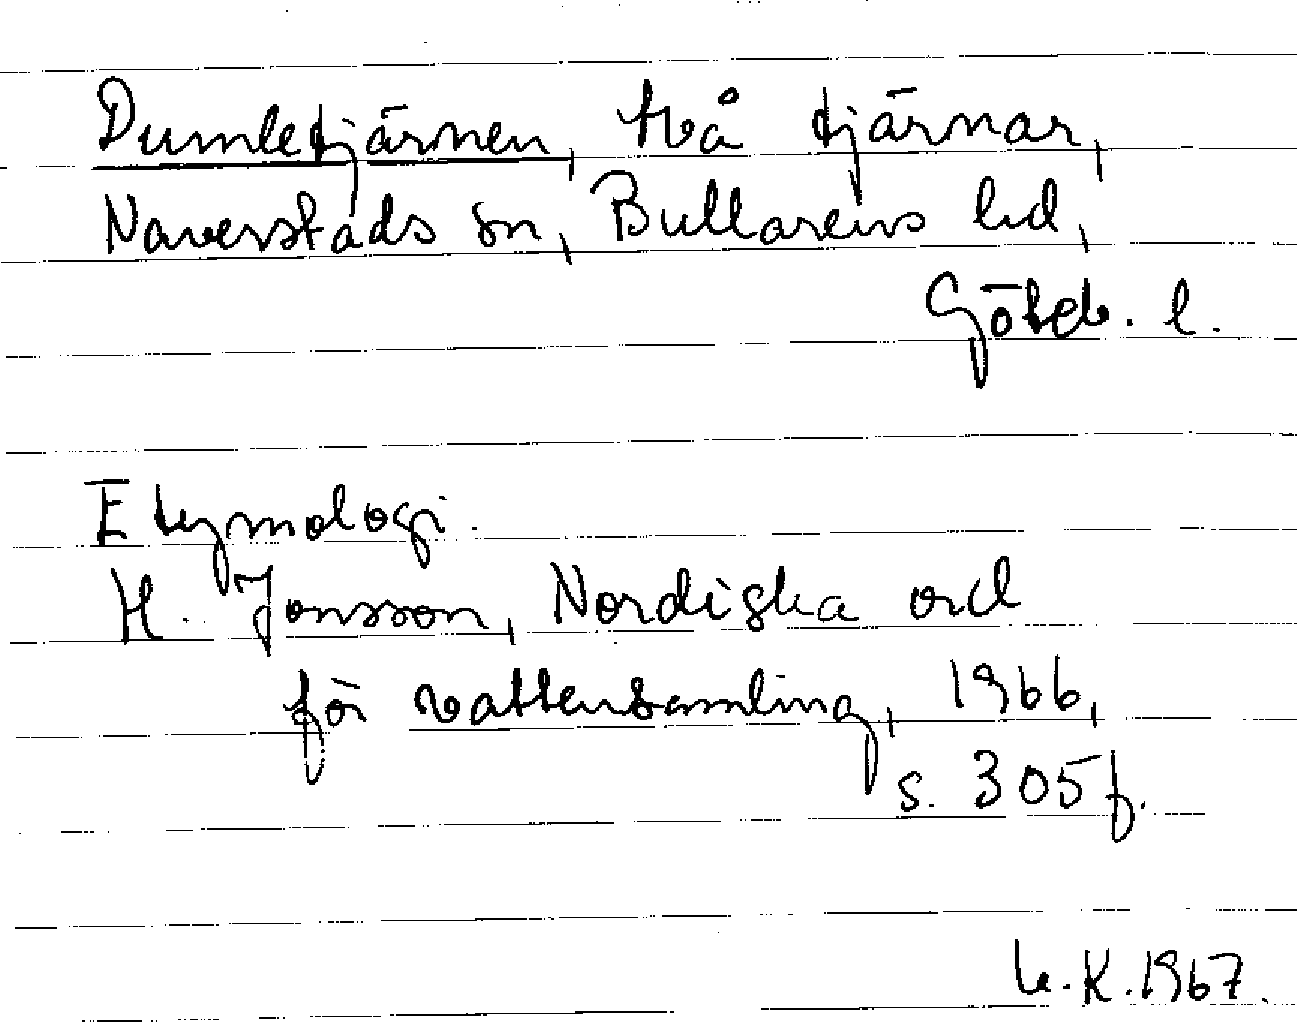 Dumletjärnen, två tjärnar,
Naverstads sn, Bullarens hd,
Göteb. l.
Etymologi.
H. Jonsson, Nordiska ord
för vattensamling, 1966,
s. 305 f.
K. 1967.